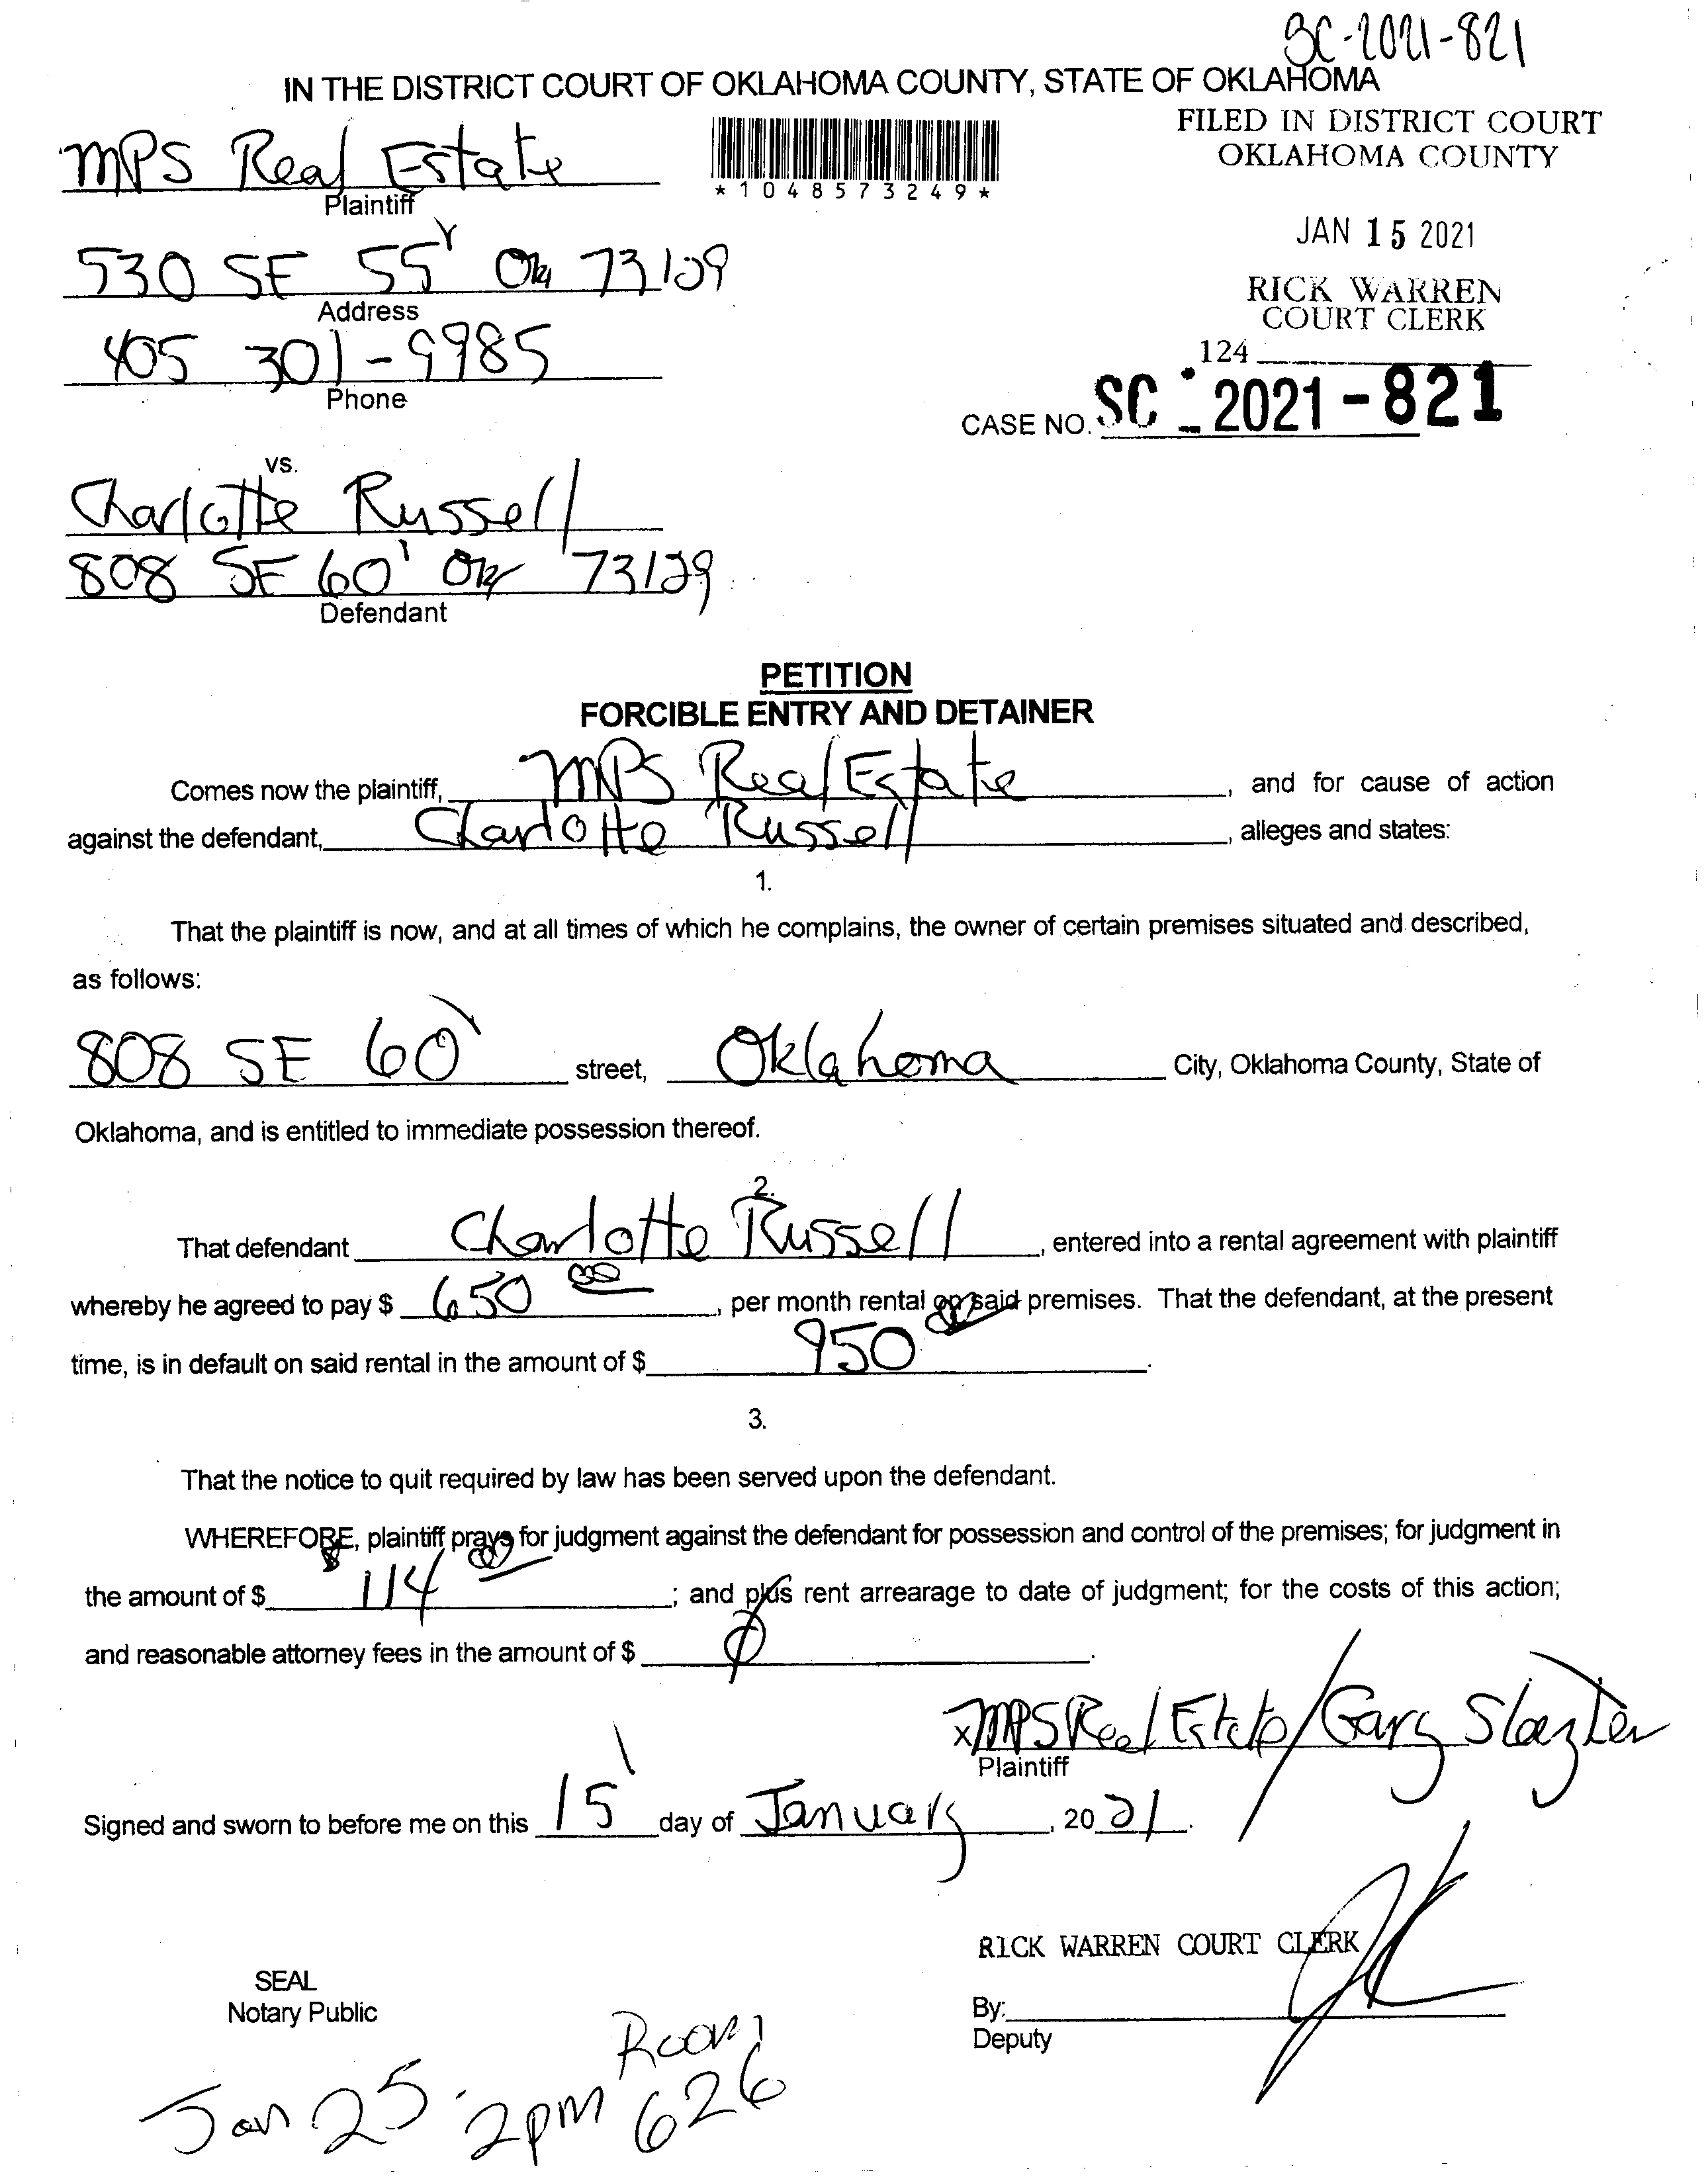 SC-2021-821
IN THE DISTRICT COURT OF OKLAHOMA COUNTY, STATE OF OKLAHOMA
FILED IN DISTRICT COURT
OKLAHOMA COUNTY
MPS Real Estate
Plaintiff
*1048573249*
JAN 15 2021
530 SE 55 Ok 73129
Address
RICK WARREN
COURT CLERK
405 301-9985
Phone
124
CASE NO. SC - 2021-821
vs.
Charlotte Russell
808 SE 60 Ok 73129
Defendant
PETITION
FORCIBLE ENTRY AND DETAINER
Comes now the plaintiff, MPS Real Estate, and for cause of action
against the defendant, Charlotte Russell, alleges and states:
1.
That the plaintiff is now, and at all times of which he complains, the owner of certain premises situated and described,
as follows:
808 SE 60 street, Oklahoma City, Oklahoma County, State of
Oklahoma, and is entitled to immediate possession thereof.
2.
That defendant Charlotte Russell, entered into a rental agreement with plaintiff
whereby he agreed to pay $ 650 00, per month rental on said premises. That the defendant, at the present
time, is in default on said rental in the amount of $ 950 00.
3.
That the notice to quit required by law has been served upon the defendant.
WHEREFORE, plaintiff prays for judgment against the defendant for possession and control of the premises; for judgment in
the amount of $ $114 00; and plus rent arrearage to date of judgment; for the costs of this action;
and reasonable attorney fees in the amount of $ 0.
x MPS Real Estate / Gary Slazter
Plaintiff
Signed and sworn to before me on this 15 day of January, 2021.
RICK WARREN COURT CLERK
SEAL
Notary Public
By:
Deputy
Room
Jan 25. 2pm 626